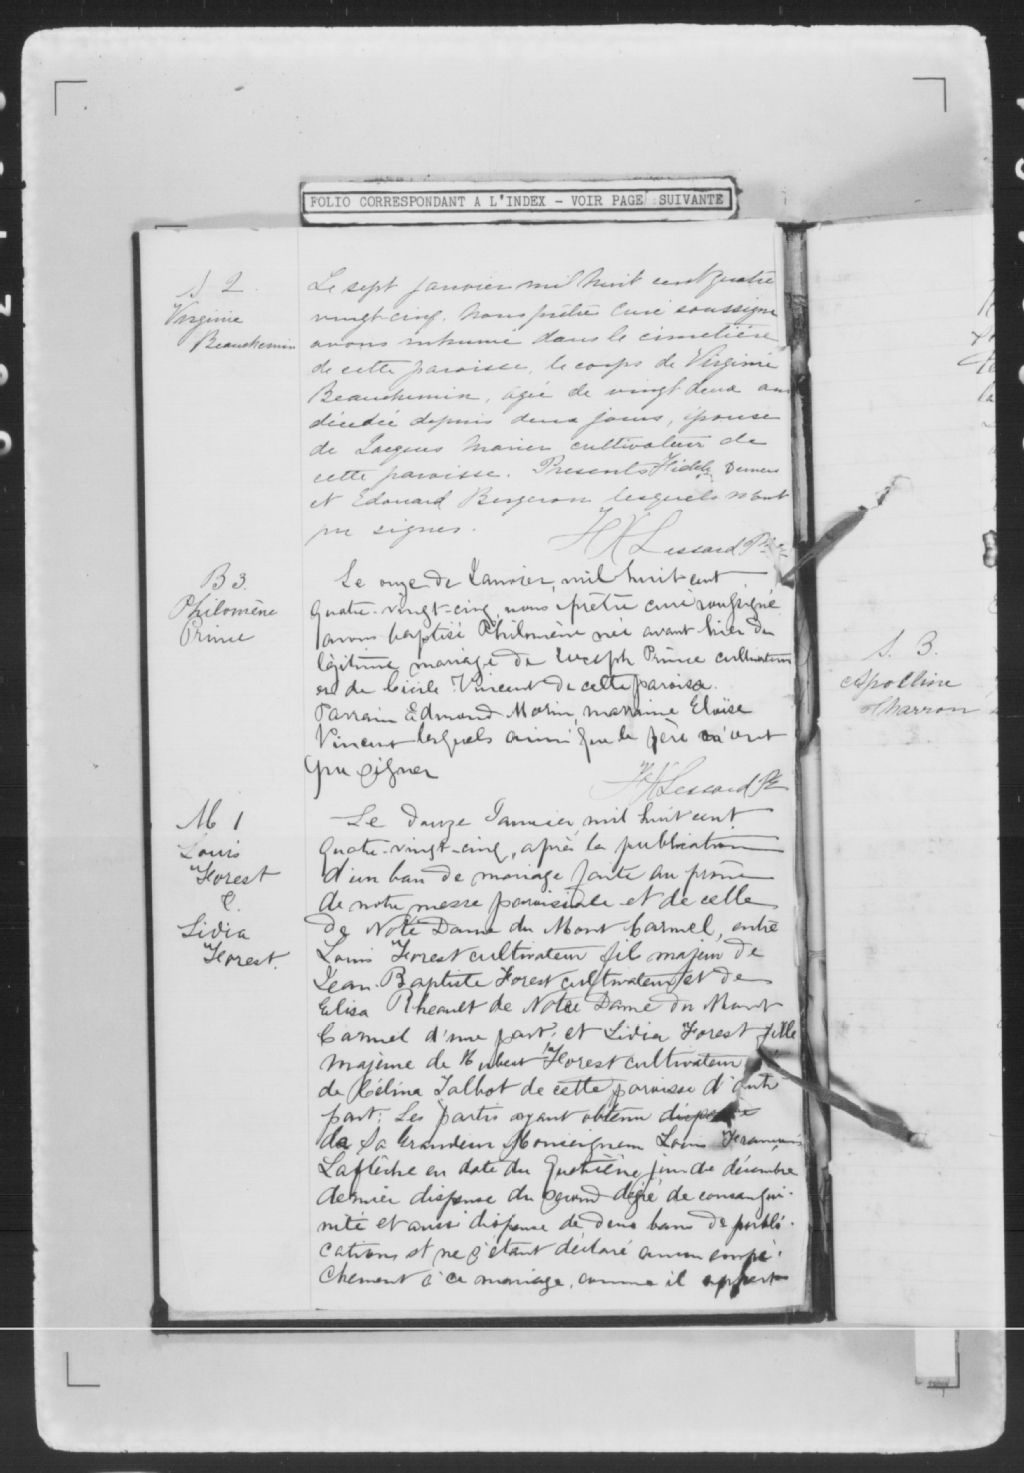 FOLIO CORRESPONDANT A L'INDEX - VOIR PAGE SUIVANTE
S 2.
Virginie
Beauchemin
Le sept janvier mil huit cent quatre
vingt-cinq. nous prêtre curé soussigné
avons inhumé dans le cimetière
de cette paroisse, le corps de Virginie
Beauchemin, agée de vingt deux ans
décédée depuis deux jours, épouse
de Jacques cultivateur de
cette paroisse. Presents Fidèle
et Edouard Bergeron lesquels n'ont
pu signer.
Lessard Ptre
B 3.
Philomène
Prince
Le onze de Janvier, mil huit cent
quatre-vingt-cinq, nous prêtre curé soussigné
avons baptisé Philomène née avant hier du
légitime mariage de Joseph Prince cultivateur
et de Cécile Vincent de cette paroisse.
Parrain Edmond Morin, marraine Eloïse
Vincent lesquels ainsi que le père n'ont
pu signer
Lessard Ptre
M 1
Louis
Forest
&
Lidia
Forest.
Le douze Janvier, mil huit cent
quatre-vingt-cinq, après la publication
d'un ban de mariage faite au prône
de notre messe paroissiale et de celle
de Notre Dame du Mont Carmel, entre
Louis Forest cultivateur fils majeur de
Jean-Baptiste Forest cultivateur et de
Elisa Rheault de Notre Dame du Mont
Carmel d'une part; et Lidia Forest fille
majeure de Hubert Forest cultivateur
de Célina Talbot de cette paroisse d'autre
part; Les partis ayant obtenu dispense
de Sa Grandeur Monseigneur Louis François
Laflèche en date du quatrième jour de décembre
dernier dispense du second degré de consangui-
nité et aussi dispense de deux bans de publi-
cations et ne s'étant déclaré aucun empê-
chement à ce mariage, comme il appert
S. 3.
Apolline
Charron